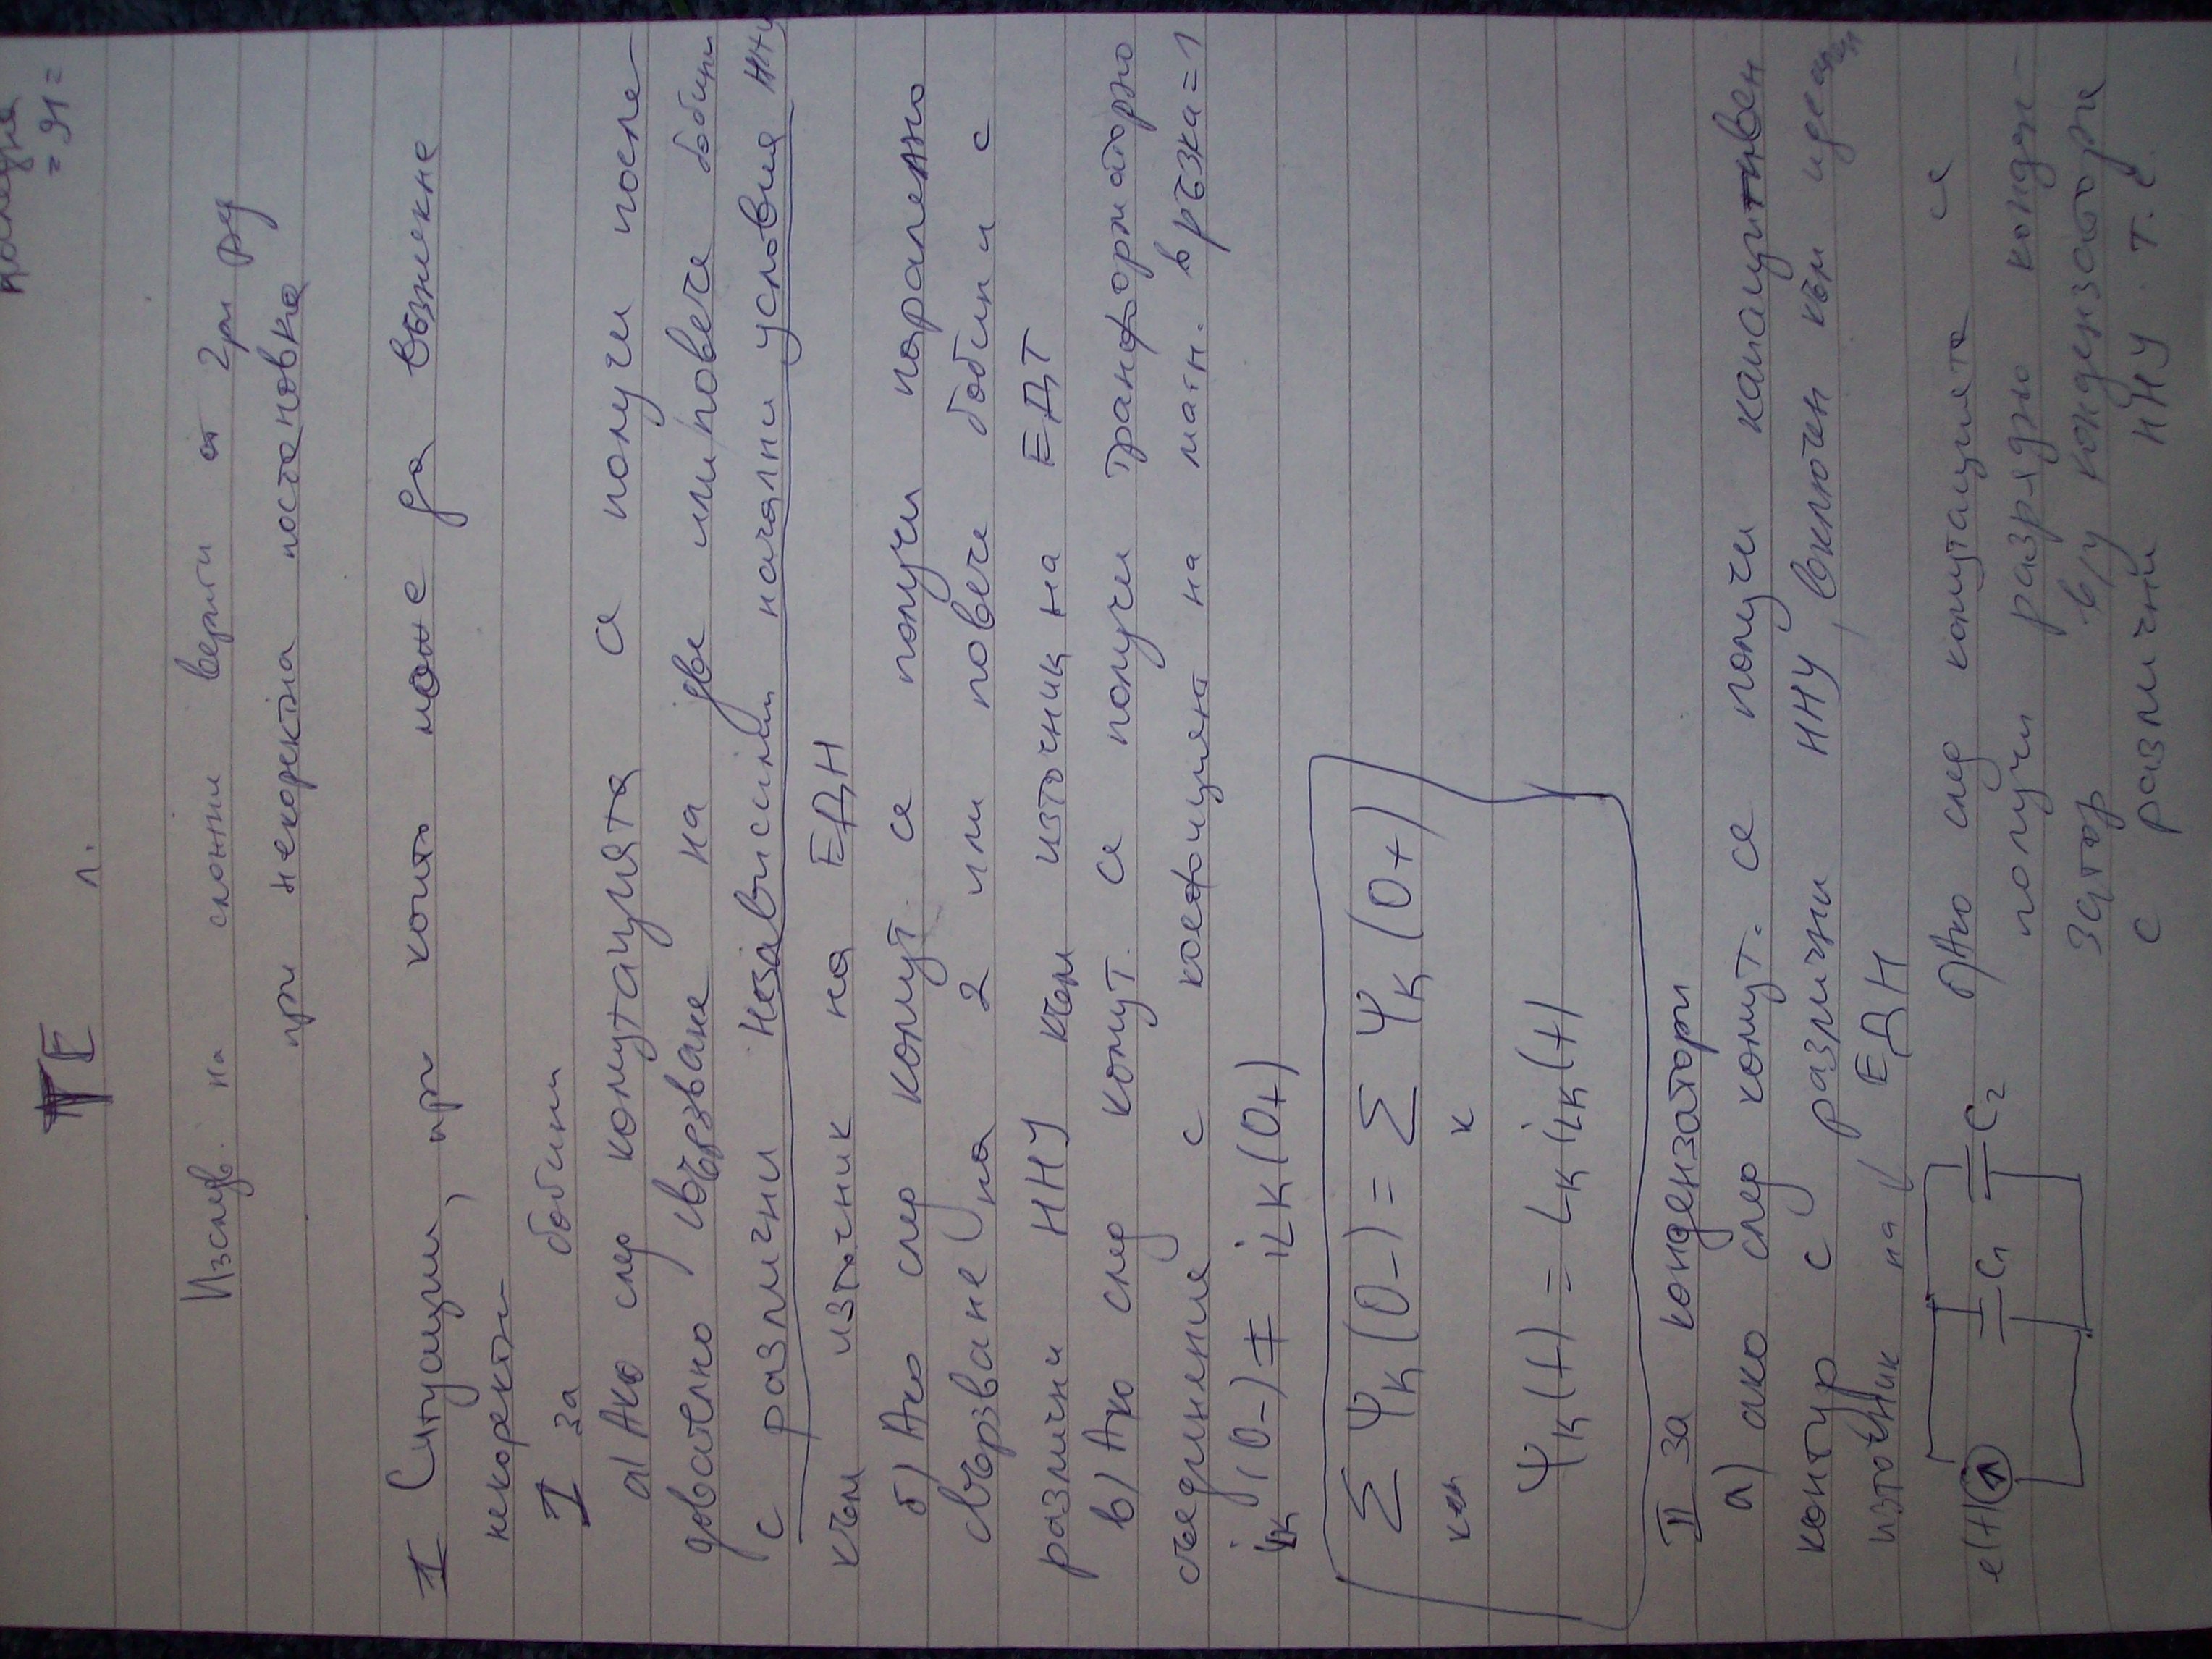 последна
= 91 =
ТЕ л.
Изслед. на сложни вериги от 2ри ред
при некоректна постановка
I Ситуации, при които може да възникне
некоректн
I за бобини
а) Ако след комутацията се получи после-
дователно свързване на две или повече бобини
с различни независими начални условия ННУ
към източник на ЕДН
б) Ако след комут. се получи паралелно
свързване на 2 или повече бобини с
различни ННУ към източник на ЕДТ
в) Ако след комут. се получи трансформаторно
съединение с коефициент на магн. връзка = 1
iLK(0-) ≠ iLK(0+)
∑ ΨK(0-) = ∑ ΨK(0+)
к к
ΨK(t) = LK iLK(t)
II за кондензатори
а) ако след комут. се получи капацитивен
контур с различни ННУ, включен към идеален
източник на ЕДН
e(t) C1 C2
б) Ако след комутацията се
получи разрядно конден-
затор в/у кондензатори
с различни ННУ т.е.